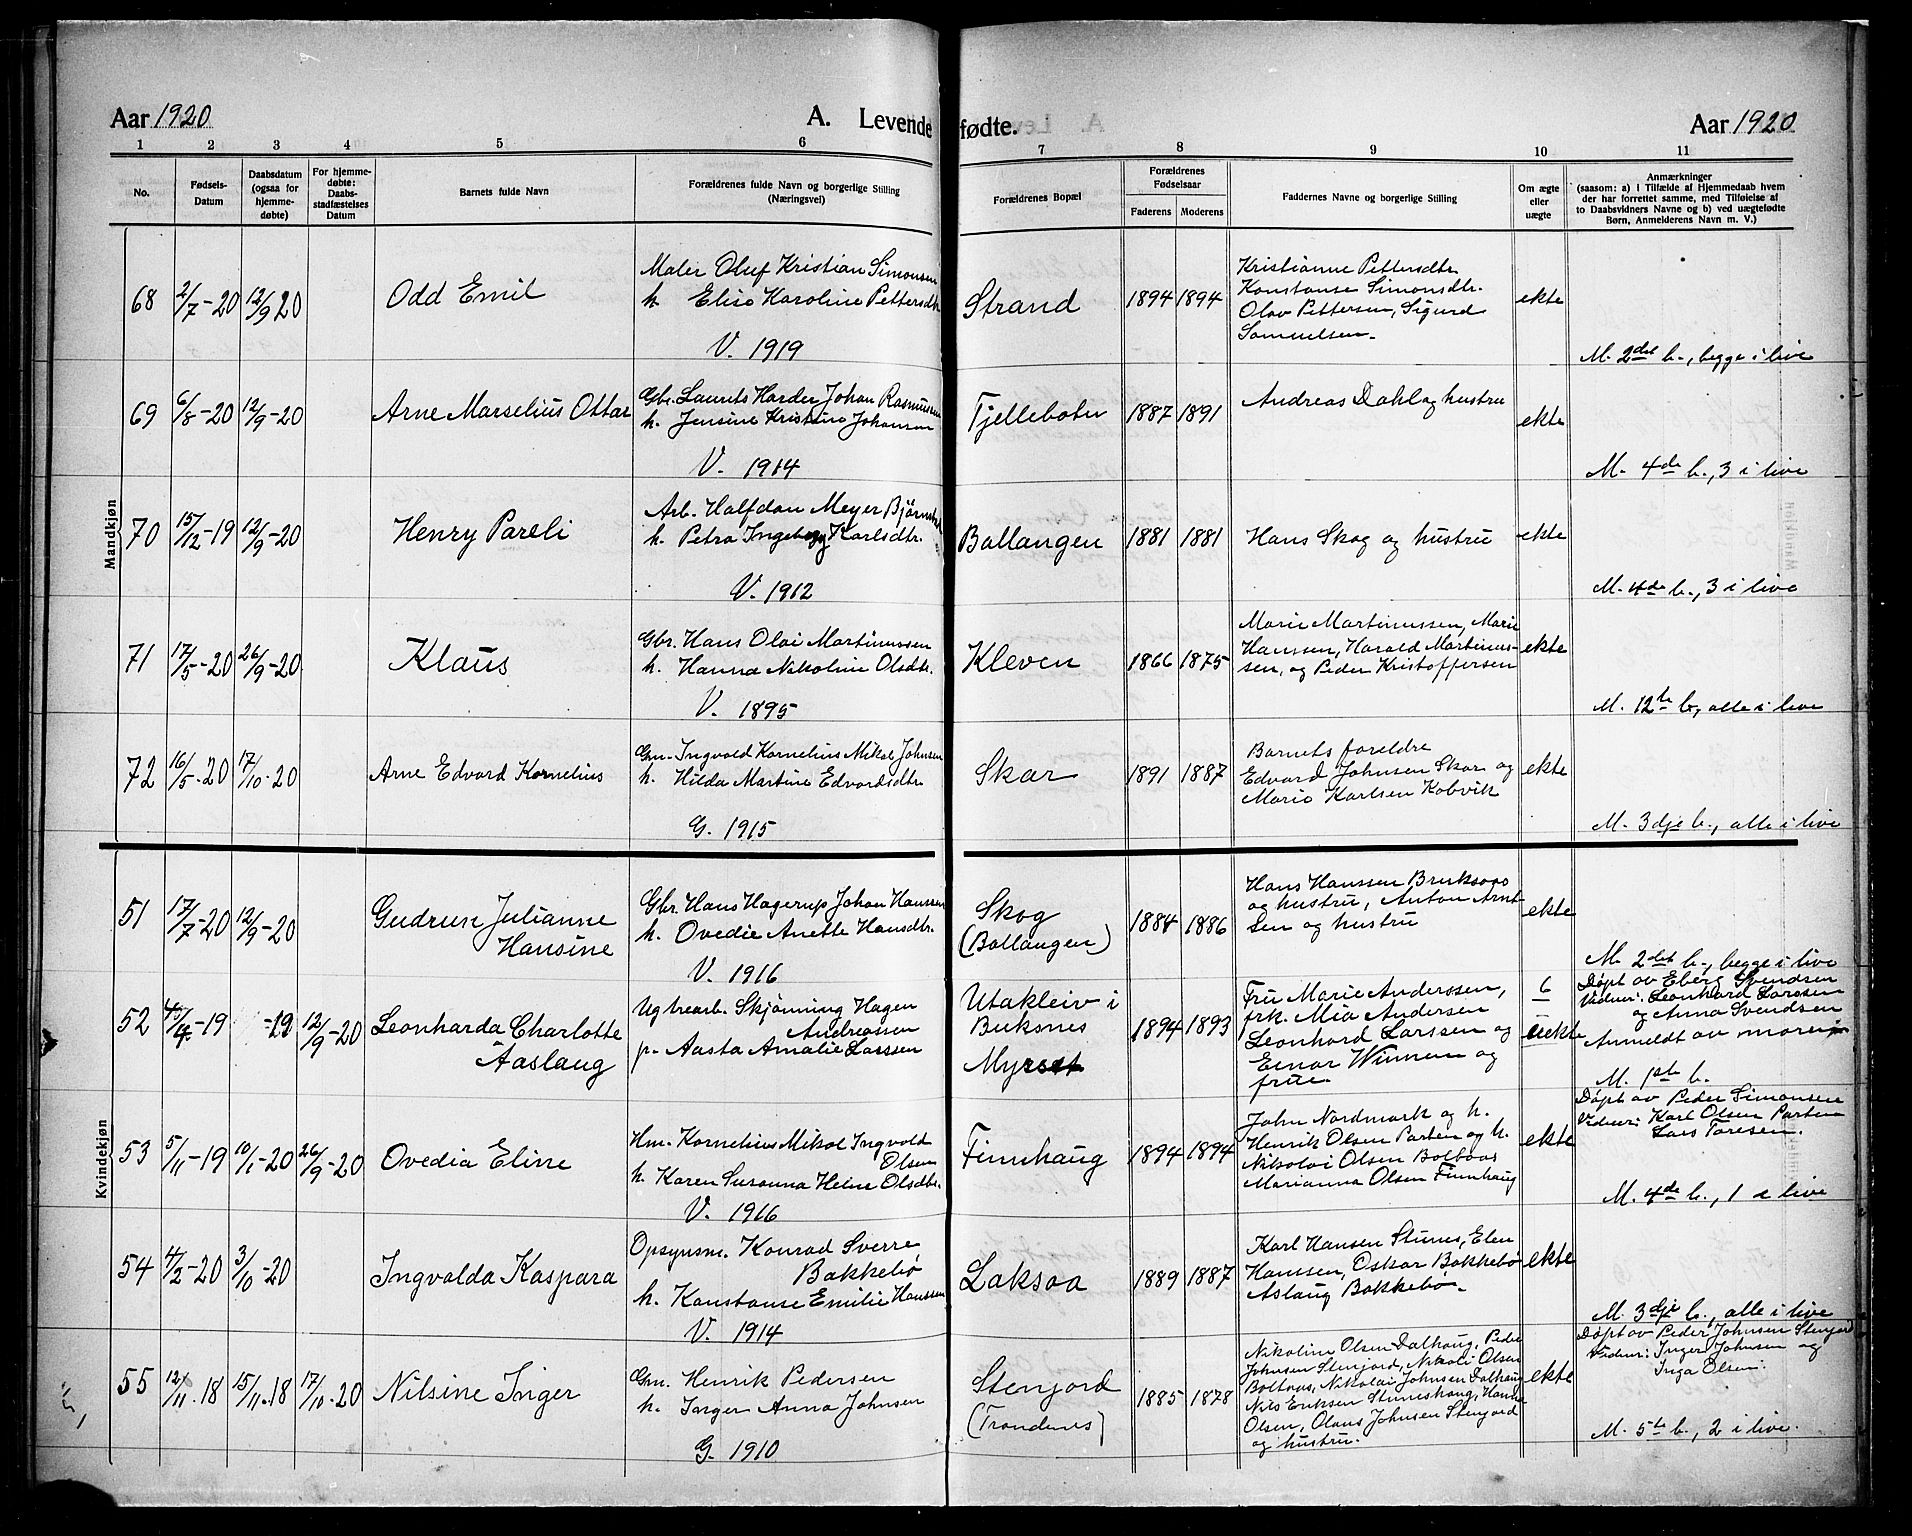 Aar 1920
A. Levende fødte.
Aar 1920
1 2 3 4 5 6 7 8 9 10 11
No.
Fødsels-
Datum
Daabsdatum
(ogsaa for
hjemme-
døbte)
For hjemme-
døbte:
Daabs-
stadfæstelses
Datum
Barnets fulde Navn
Forældrenes fulde Navn og borgerlige Stilling
(Næringsvei)
Forældrenes Bopæl
Forældrenes
Fødselsaar
Faderens Moderens
Faddernes Navne og borgerlige Stilling
Om ægte
eller
uægte
Anmærkninger
(saasom: a) I Tilfælde af Hjemmedaab hvem
der har forrettet samme, med Tilføielse af
to Daabsvidners Navne og b) ved uægtefødte
Børn, Anmelderens Navn m. V.)
Mandkjøn
68 2/7-20 12/9 20 Odd Emil
Maler Oluf Kristian Simonsen
h. Elise Karoline Pettersdtr
V. 1919
Strand 1894 1894
Kristianne Pettersdtr
Konstanse Simonsdtr.
Olav Pettersen, Sigurd
Samuelsen.
ekte
M. 2det b., begge i live
69 6/8-20 12/9-20 Arne Marselius Ottar
Gbr. Laurits Harder Johan Rasmussen
h. Jensine Kristine Johansen
V. 1914
Tjellebotn 1887 1891
Andreas Dahl og hustru
ekte
M. 4de b., 3 i live
70 15/12-19 12/9-20 Henry Pareli
Arb. Halfdan Meyer
h. Petra Ingeborg Karlsdtr.
V. 1912
Ballangen 1881 1881
Hans Skog og hustru
ekte
M. 4de b., 3 i live
71 17/5-20 26/9-20 Klaus
Gbr. Hans Olai Martinussen
h. Hanna Nikoline Olsdtr.
V. 1895
Kleven 1866 1875
Marie Martinussen, Marie
Hanssen, Harald Martinus-
sen, og Peder Kristoffersen
ekte
M. 12te b., alle i live
72 16/5-20 17/10-20 Arne Edvard Kornelius
Gm. Ingvald Kornelius Mikal Johnsen
h. Hilda Martine Edvardsdtr
G. 1915
Skar 1891 1887
Barnets foreldre
Edvard Johnsen Skar og
Marie Karlsen Kobvik
ekte
M. 3dje b., alle i live
Kvindekjøn
51 17/7-20 12/9-20 Gudrun Julianne
Hansine
Gbr. Hans Hagerup Johan Hanssen
h. Ovedie Anette Hansdtr.
V. 1916
Skog
(Ballangen)
1884 1886
Hans Hanssen
og hustru, Anton Arnt
sen og hustru
ekte
M. 2det b., begge i live
52 -19 -19 12/9-20 Leonharda Charlotte
Aaslaug
Ugbrearb. Skjønning Hagen
Andreassen
p. Aasta Amalie Larssen
Utakleiv i
Buksnes
1894 1893
Fru Marie Anderssen,
frk. Mia Andersen
Leonhard Larssen og
Einar Winnem og
frue.
6
uekte
Døpt av Eberg Svendsen
Vidner: Leonhard Larssen
og Anna Svendsen
Anmeldt av moren
M. 1ste b.
53 5/11-19 10/1-20 26/9-20 Ovedia Eline
Hm. Kornelius Mikal Ingvald
Olsen
h. Karen Susanna Helene Olsdtr.
V. 1916
Finnhaug 1894 1894
John Nordmark og h.
Henrik Olsen Parten og h.
Nikolai Olsen Boltaas
Marianna Olsen Finnhaug
ekte
Døpt av Peder Simonsen
Vidner: Karl Olsen Parten
Lars Taresen.
M. 4de b., 1 i live
54 4/2-20 3/10-20 Ingvalda Kaspara
Opsynsm. Konrad Sverre
Bakkebø
h. Konstanse Emilie Hanssen
V. 1914
Laksaa 1889 1887
Karl Hansen Stunes, Elen
Hanssen, Oskar Bakkebø
Aslaug Bakkebø.
ekte
M. 3dje b., alle i live
55 12/11-18 15/11-18 17/10-20 Nilsine Inger
Gm. Henrik Pedersen
h. Inger Anna Johnsen
G. 1910
Stenjord
(Trondenes)
1885 1878
Nikoline Olsen Dalhaug, Peder
Johnsen Stenjord, Nikoli Olsen
Boltaas, Nikolai Johnsen Dalhaug
Nils Eriksen Stuneshaug, Hanna
Olsen, Olaus Johnsen Stenjord
og hustru.
ekte
Døpt av Peder Johnsen Stenjord
Vidner: Inger Johnsen og
Inga Olsen.
M. 5te b., 2 i live.